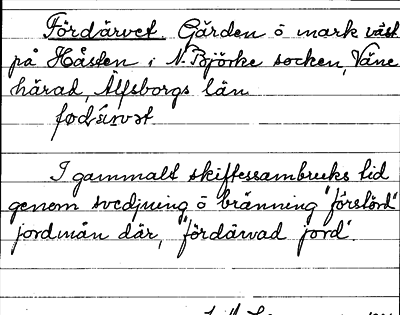 Fördärvet. Gården ö mark väst
på Håsten i N. Björke socken, Väne
härad, Älfsborgs län
I gammalt skiftessambruks tid
genom svedjning ö bränning "förstörd"
jordmån där, "fördärvad jord".